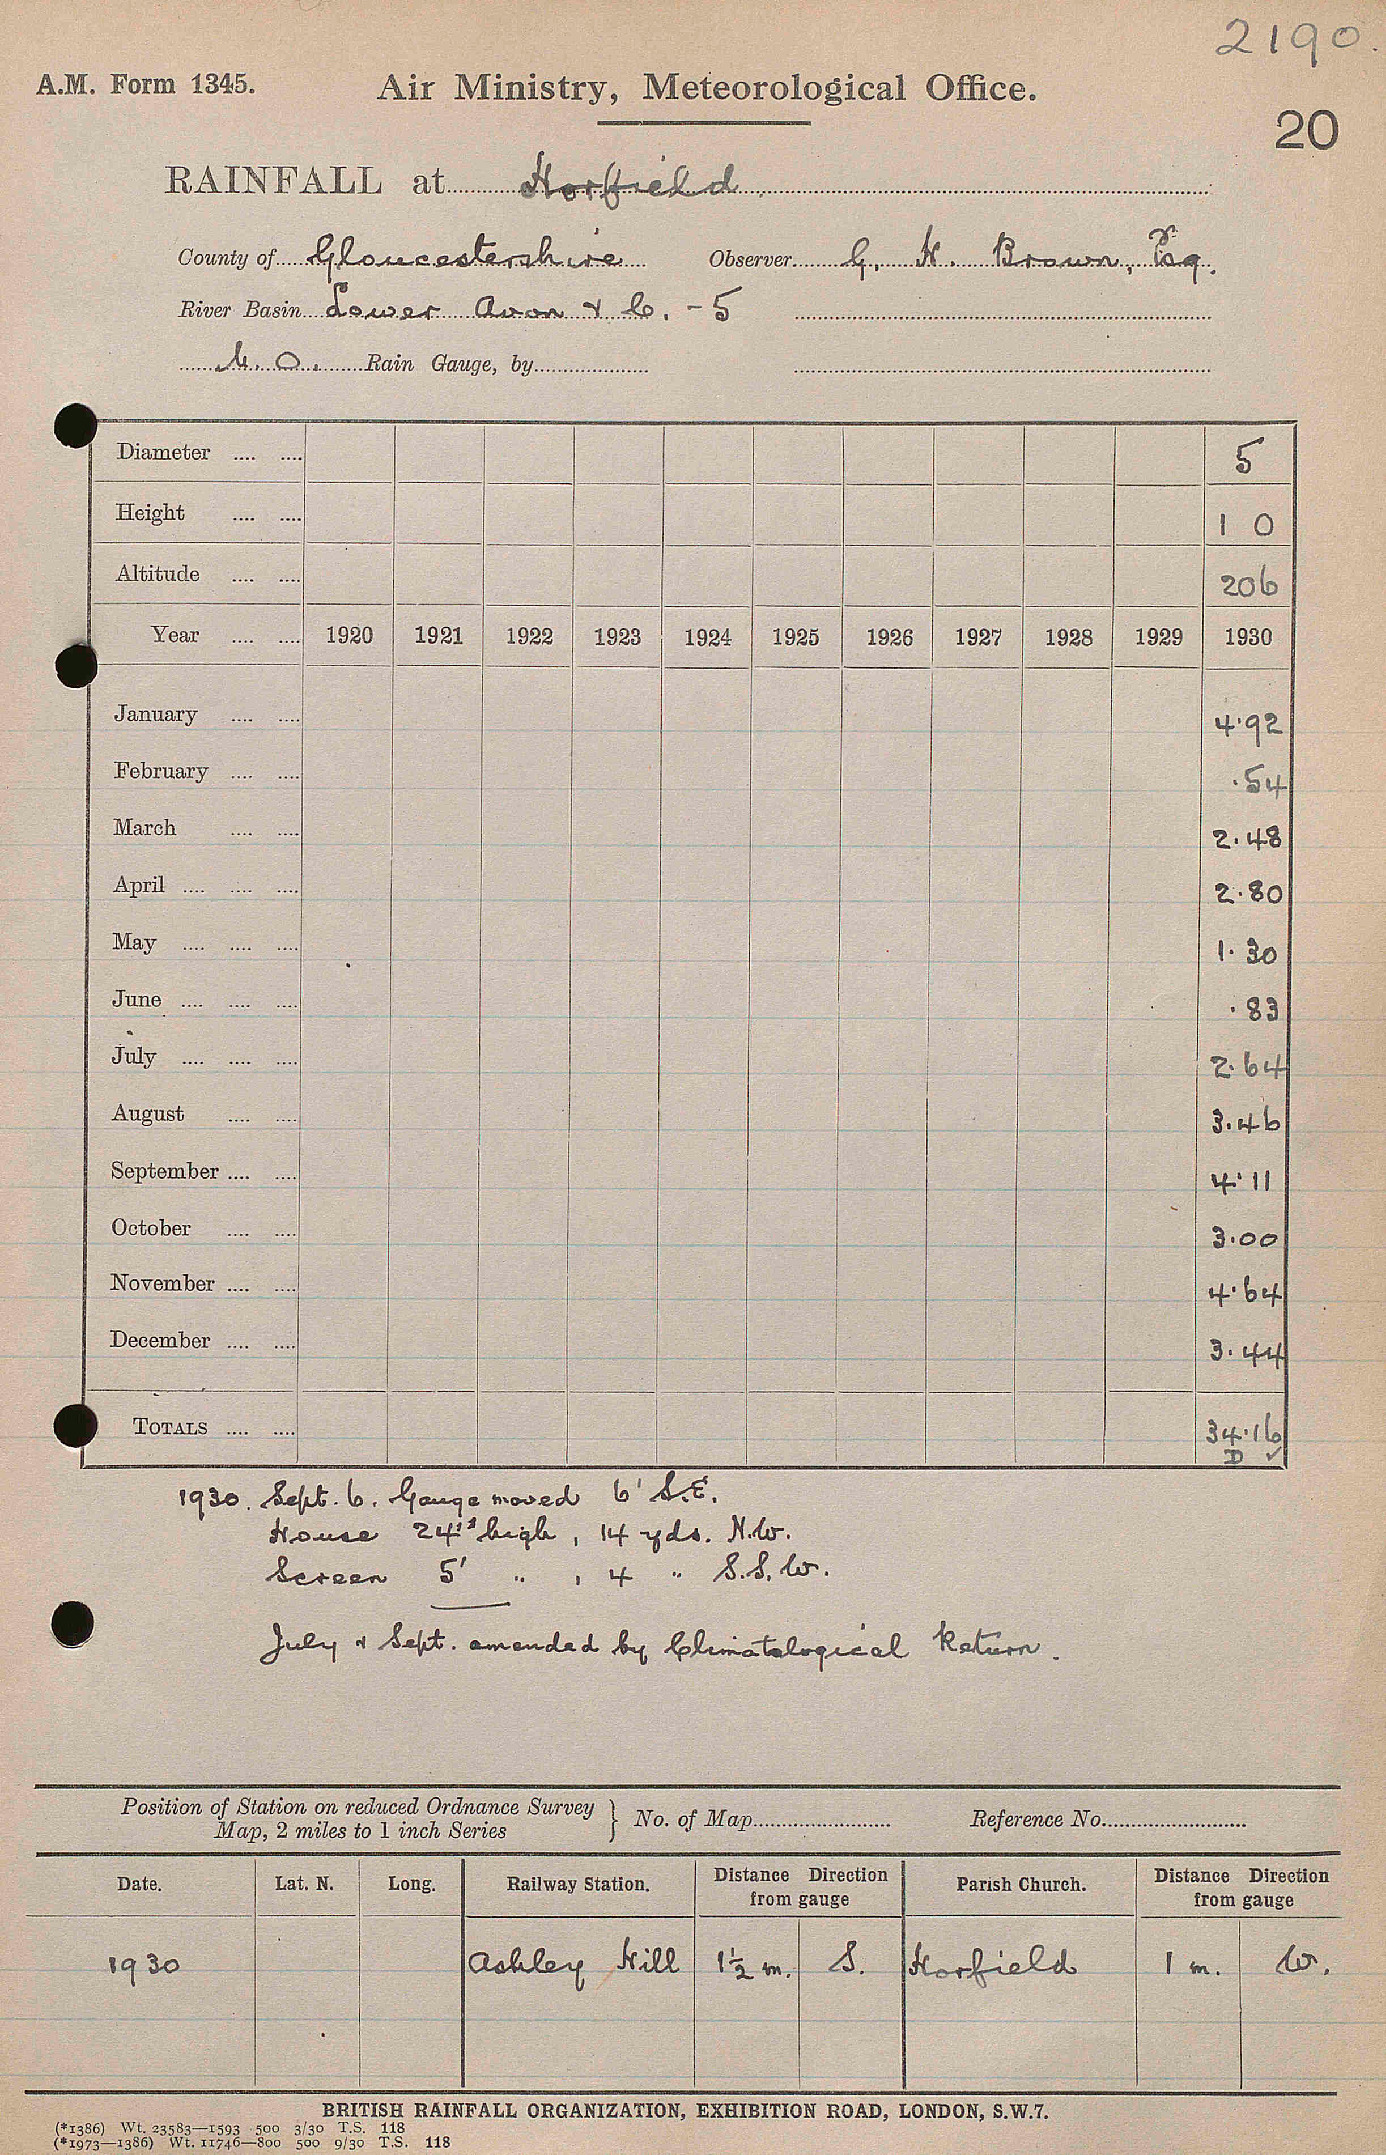 2190.
A.M. Form 1345. Air Ministry, Meteorological Office.
20
RAINFALL at Horfield.
County of Gloucestershire Observer G. H. Brown, Esqr.
River Basin Lower Avon & C. - 5
M.O. Rain Gauge, by
Diameter 5
Height 1 0
Altitude 206
Year 1920 1921 1922 1923 1924 1925 1926 1927 1928 1929 1930
January 4.92
February .54
March 2.48
April 2.80
May 1.30
June .83
July 2.64
August 3.46
September 4.11
October 3.00
November 4.64
December 3.44
TOTALS 34.16
D ✓
1930. Sept. 6. Gauge moved 6' S.E.
House 24' high, 14 yds. N.W.
Screen 5' " , 4 " S.S.W.
July & Sept. amended by Climatological Return.
Position of Station on reduced Ordnance Survey
Map, 2 miles to 1 inch Series } No. of Map Reference No.
Date. Lat. N. Long. Railway Station. Distance Direction from gauge Parish Church. Distance Direction from gauge
1930 Ashley Hill 1½ m. S. Horfield 1 m. W.
BRITISH RAINFALL ORGANIZATION, EXHIBITION ROAD, LONDON, S.W.7.
(*1386) Wt. 23583—1593 500 3/30 T.S. 118
(*1973—1386) Wt. 11746—800 500 9/30 T.S. 118